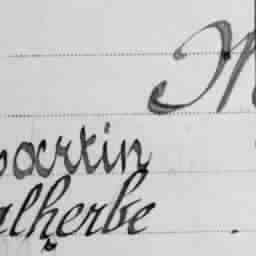 M
artin
alherbe